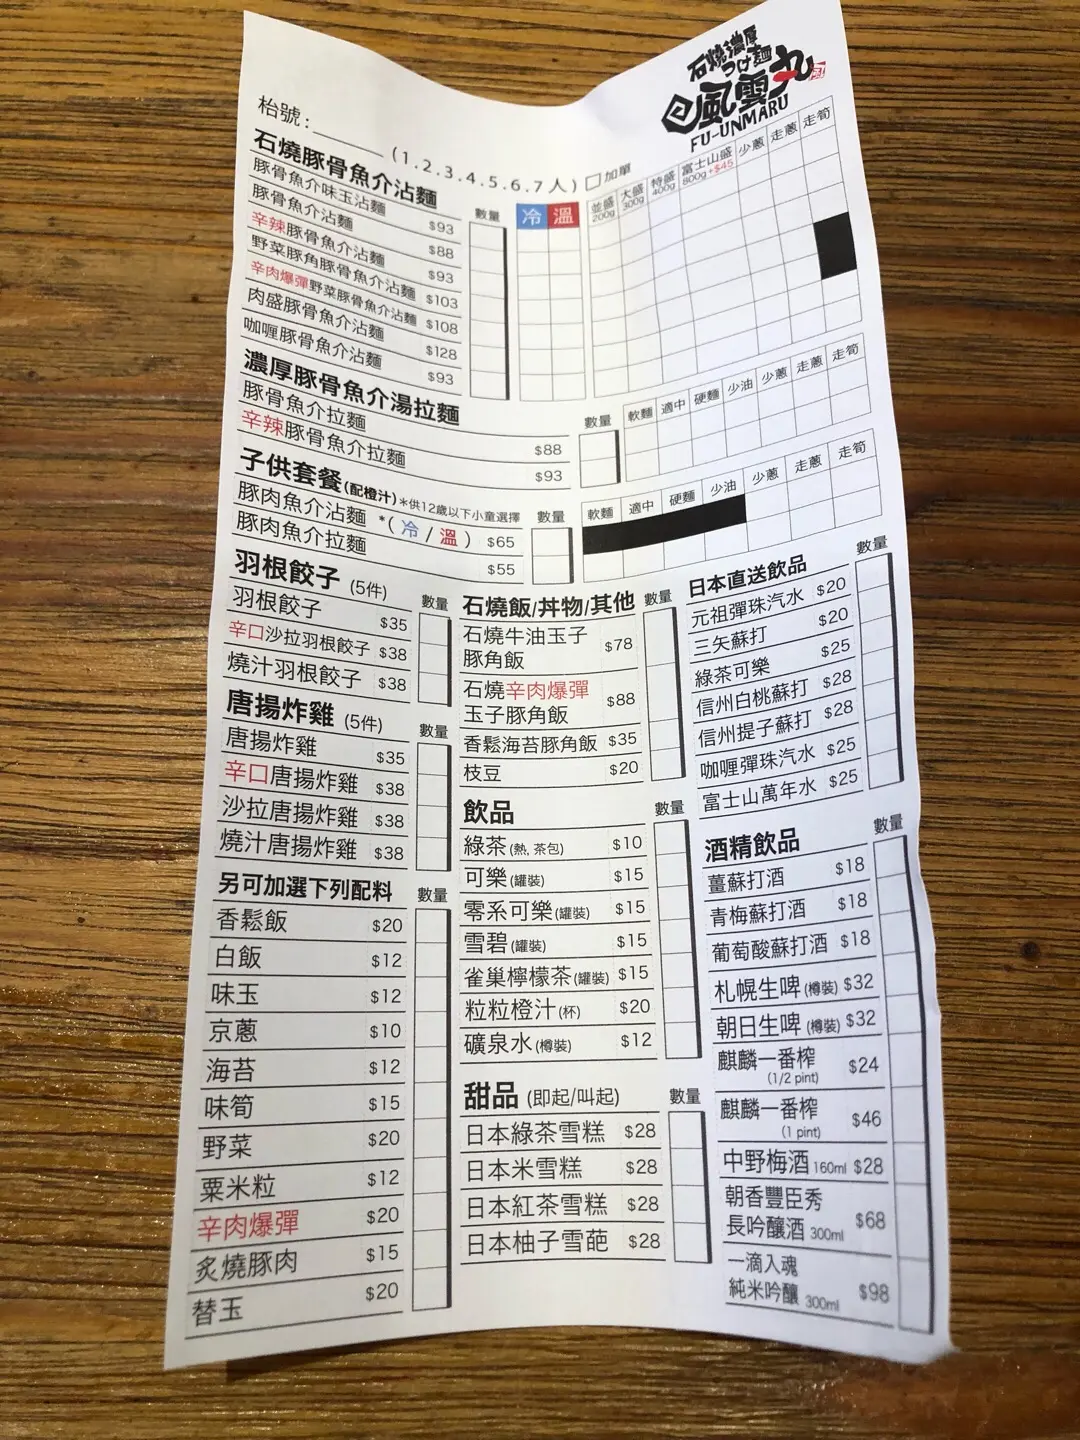 石燒濃厚
つけ麺
風雲丸
FU-UNMARU
枱號:
(1.2.3.4.5.6.7人) 加單
石燒豚骨魚介沾麵 數量 冷 溫 並盛200g 大盛300g 特盛400g 富士山盛800g+$45 少蔥 走蔥 走筍
豚骨魚介味玉沾麵 $93
豚骨魚介沾麵 $88
辛辣豚骨魚介沾麵 $93
野菜豚角豚骨魚介沾麵 $103
辛肉爆彈野菜豚骨魚介沾麵 $108
肉盛豚骨魚介沾麵 $128
咖喱豚骨魚介沾麵 $93
濃厚豚骨魚介湯拉麵 數量 軟麵 適中 硬麵 少油 少蔥 走蔥 走筍
豚骨魚介拉麵 $88
辛辣豚骨魚介拉麵 $93
子供套餐(配橙汁)*供12歲以下小童選擇 數量 軟麵 適中 硬麵 少油 少蔥 走蔥 走筍
豚肉魚介沾麵 *(冷/溫) $65
豚肉魚介拉麵 $55
羽根餃子 (5件) 數量
羽根餃子 $35
辛口沙拉羽根餃子 $38
燒汁羽根餃子 $38
唐揚炸雞 (5件) 數量
唐揚炸雞 $35
辛口唐揚炸雞 $38
沙拉唐揚炸雞 $38
燒汁唐揚炸雞 $38
另可加選下列配料 數量
香鬆飯 $20
白飯 $12
味玉 $12
京蔥 $10
海苔 $12
味筍 $15
野菜 $20
粟米粒 $12
辛肉爆彈 $20
炙燒豚肉 $15
替玉 $20
石燒飯/丼物/其他 數量
石燒牛油玉子
豚角飯 $78
石燒辛肉爆彈
玉子豚角飯 $88
香鬆海苔豚角飯 $35
枝豆 $20
飲品 數量
綠茶(熱, 茶包) $10
可樂(罐裝) $15
零系可樂(罐裝) $15
雪碧(罐裝) $15
雀巢檸檬茶(罐裝) $15
粒粒橙汁(杯) $20
礦泉水(樽裝) $12
甜品 (即起/叫起) 數量
日本綠茶雪糕 $28
日本米雪糕 $28
日本紅茶雪糕 $28
日本柚子雪葩 $28
日本直送飲品 數量
元祖彈珠汽水 $20
三矢蘇打 $20
綠茶可樂 $25
信州白桃蘇打 $28
信州提子蘇打 $28
咖喱彈珠汽水 $25
富士山萬年水 $25
酒精飲品 數量
薑蘇打酒 $18
青梅蘇打酒 $18
葡萄酸蘇打酒 $18
札幌生啤(樽裝) $32
朝日生啤(樽裝) $32
麒麟一番榨
(1/2 pint) $24
麒麟一番榨
(1 pint) $46
中野梅酒 160ml $28
朝香豐臣秀
長吟釀酒 300ml $68
一滴入魂
純米吟釀 300ml $98